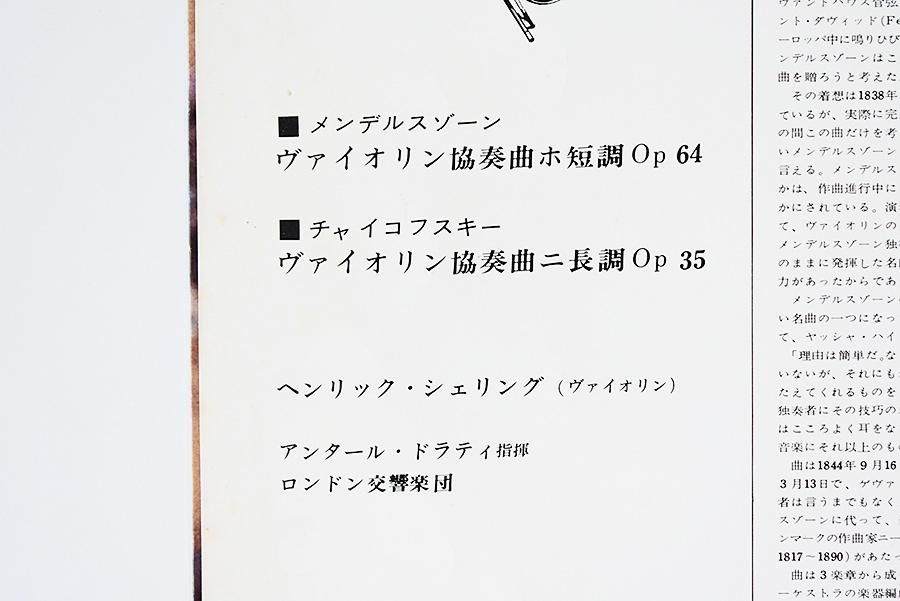 ■ メンデルスゾーン
ヴァイオリン協奏曲ホ短調Op 64
■ チャイコフスキー
ヴァイオリン協奏曲ニ長調Op 35
ヘンリック・シェリング (ヴァイオリン)
アンタール・ドラティ指揮
ロンドン交響楽団
ント・ダヴィッド(Fe
ーロッパ中に鳴りひび
ンデルスゾーンはこ
曲を贈ろうと考えた
その着想は1838年
ているが、実際に完
の間この曲だけを考
いメンデルスゾーン
言える。メンデルス
かは、作曲進行中に
かにされている。演
て、ヴァイオリンの
メンデルスゾーン独
のままに発揮した名
力があったからであ
メンデルスゾーン
い名曲の一つになっ
て、ヤッシャ・ハイ
「理由は簡単だ。な
いないが、それにも
たえてくれるものを
独奏者にその技巧の
はこころよく耳をな
音楽にそれ以上のも
曲は1844年9月16
3月13日で、ゲヴァ
者は言うまでもなく
スゾーンに代って、
ンマークの作曲家ニー
1817～1890)があた
曲は3楽章から成
ーケストラの楽器編